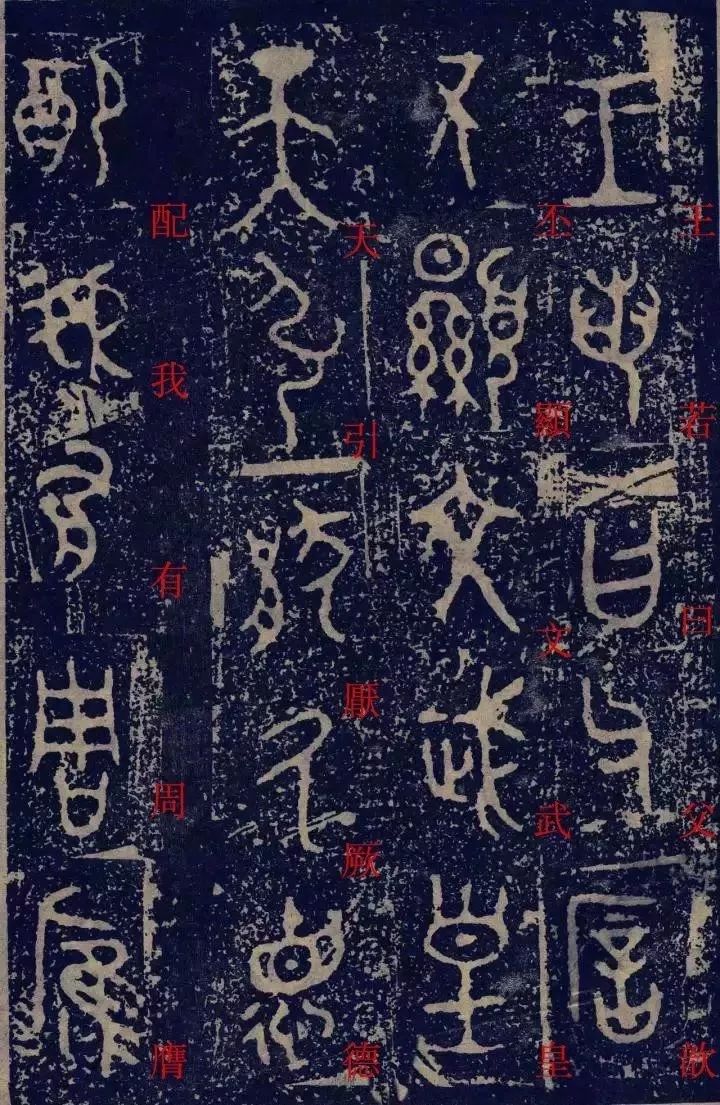 王若曰父歆
丕顯文武皇
天引厭厥德
配我有周膺